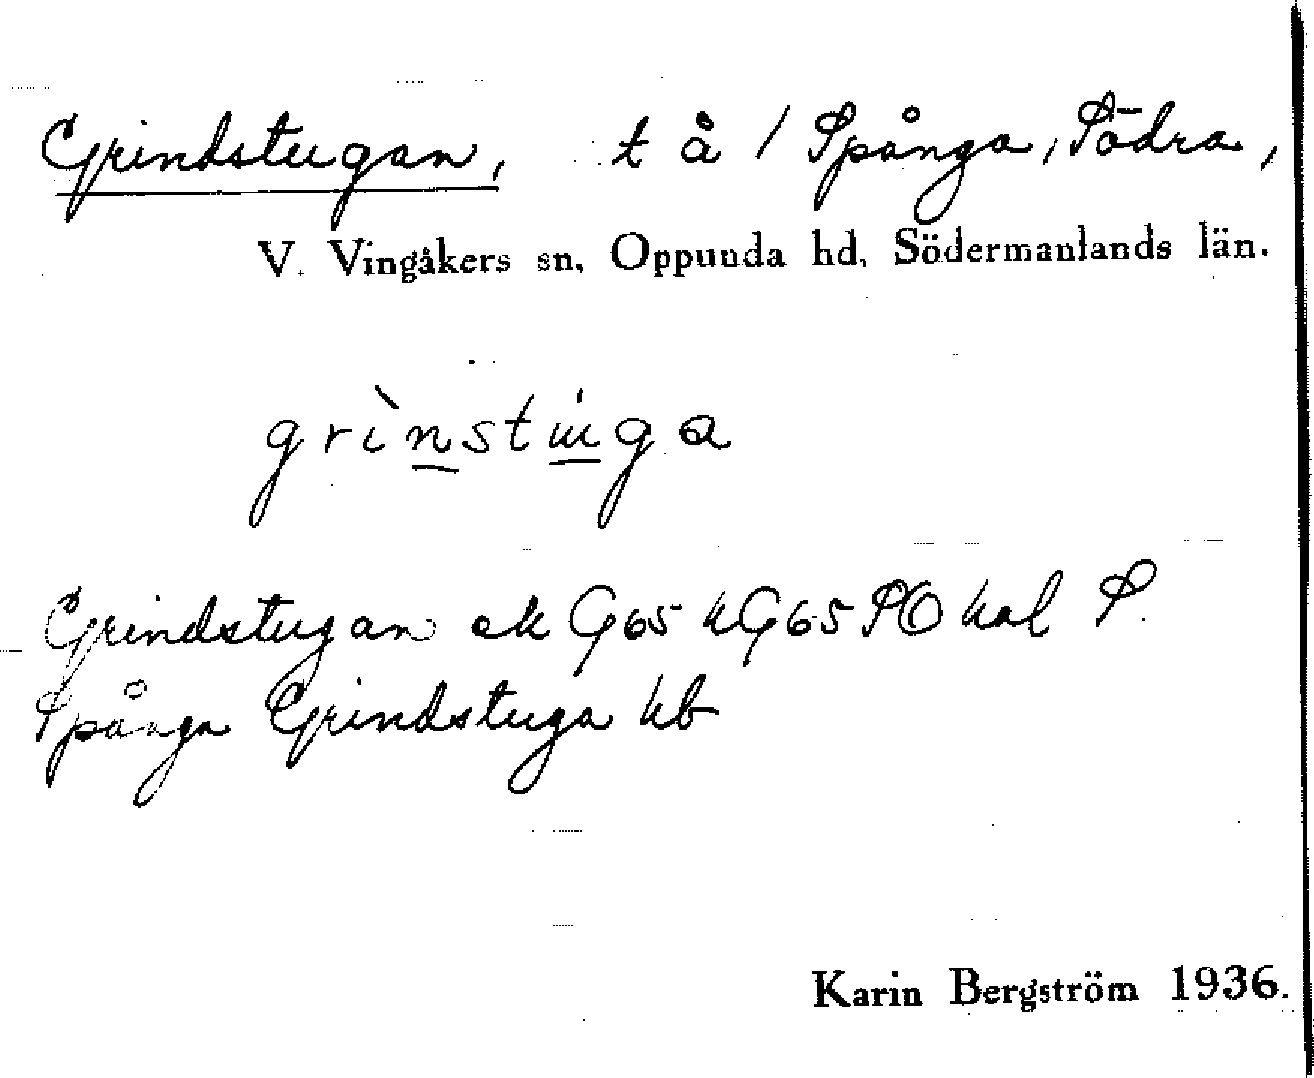 Grindstugan, t å / Spånga, Södra,
V. Vingåkers sn, Oppunda hd, Södermanlands län.
grinstuga
Grindstugan ek G65 hG65 SO hal S.
Spånga Grindstuga hb
Karin Bergström 1936.